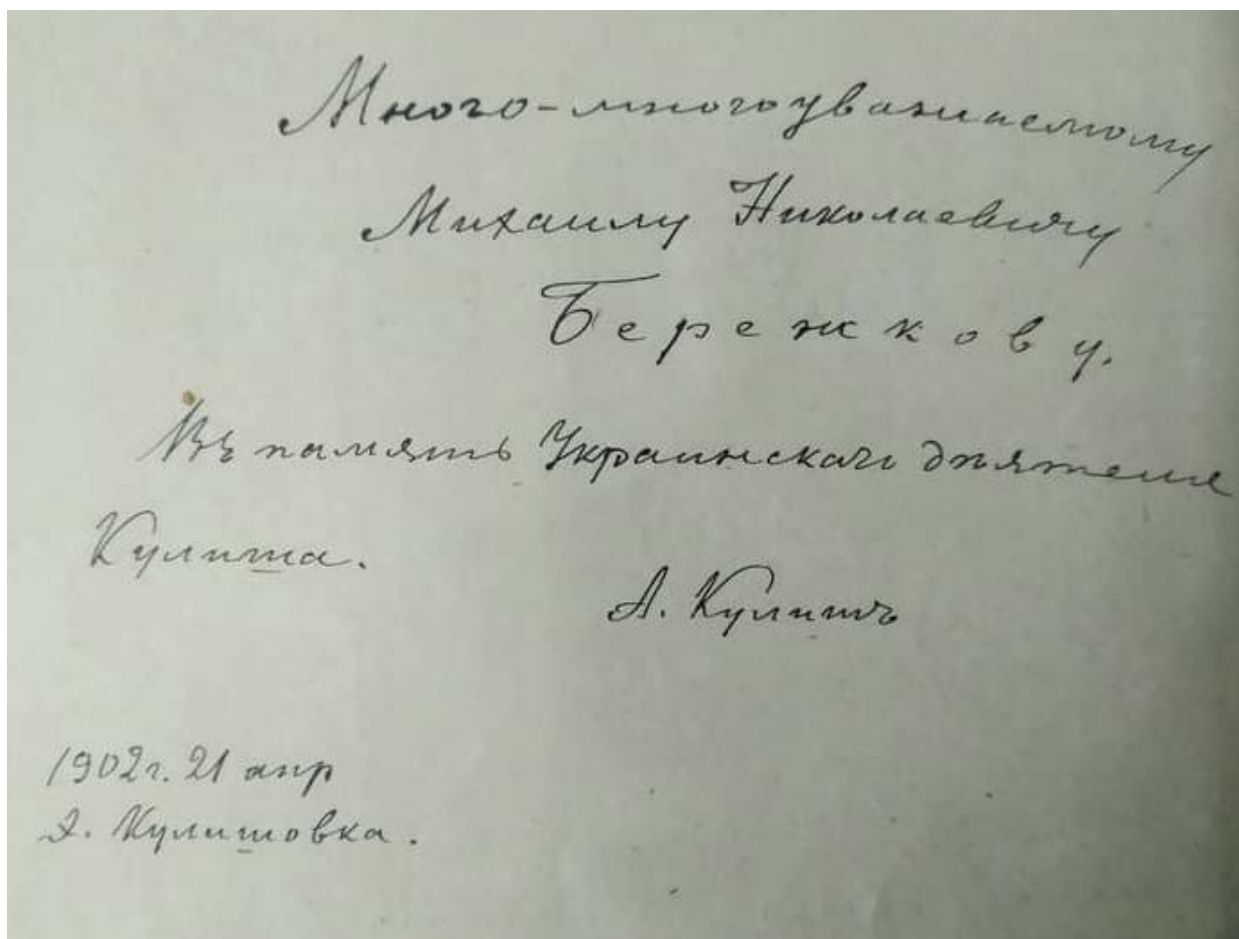 Много-многоуважаемому
Михаилу Николаевичу
Бережкову.
Въ память Украинскаго дѣятеля
Кулиша.
А. Кулишъ
1902г. 21 апр
Х. Кулишовка.